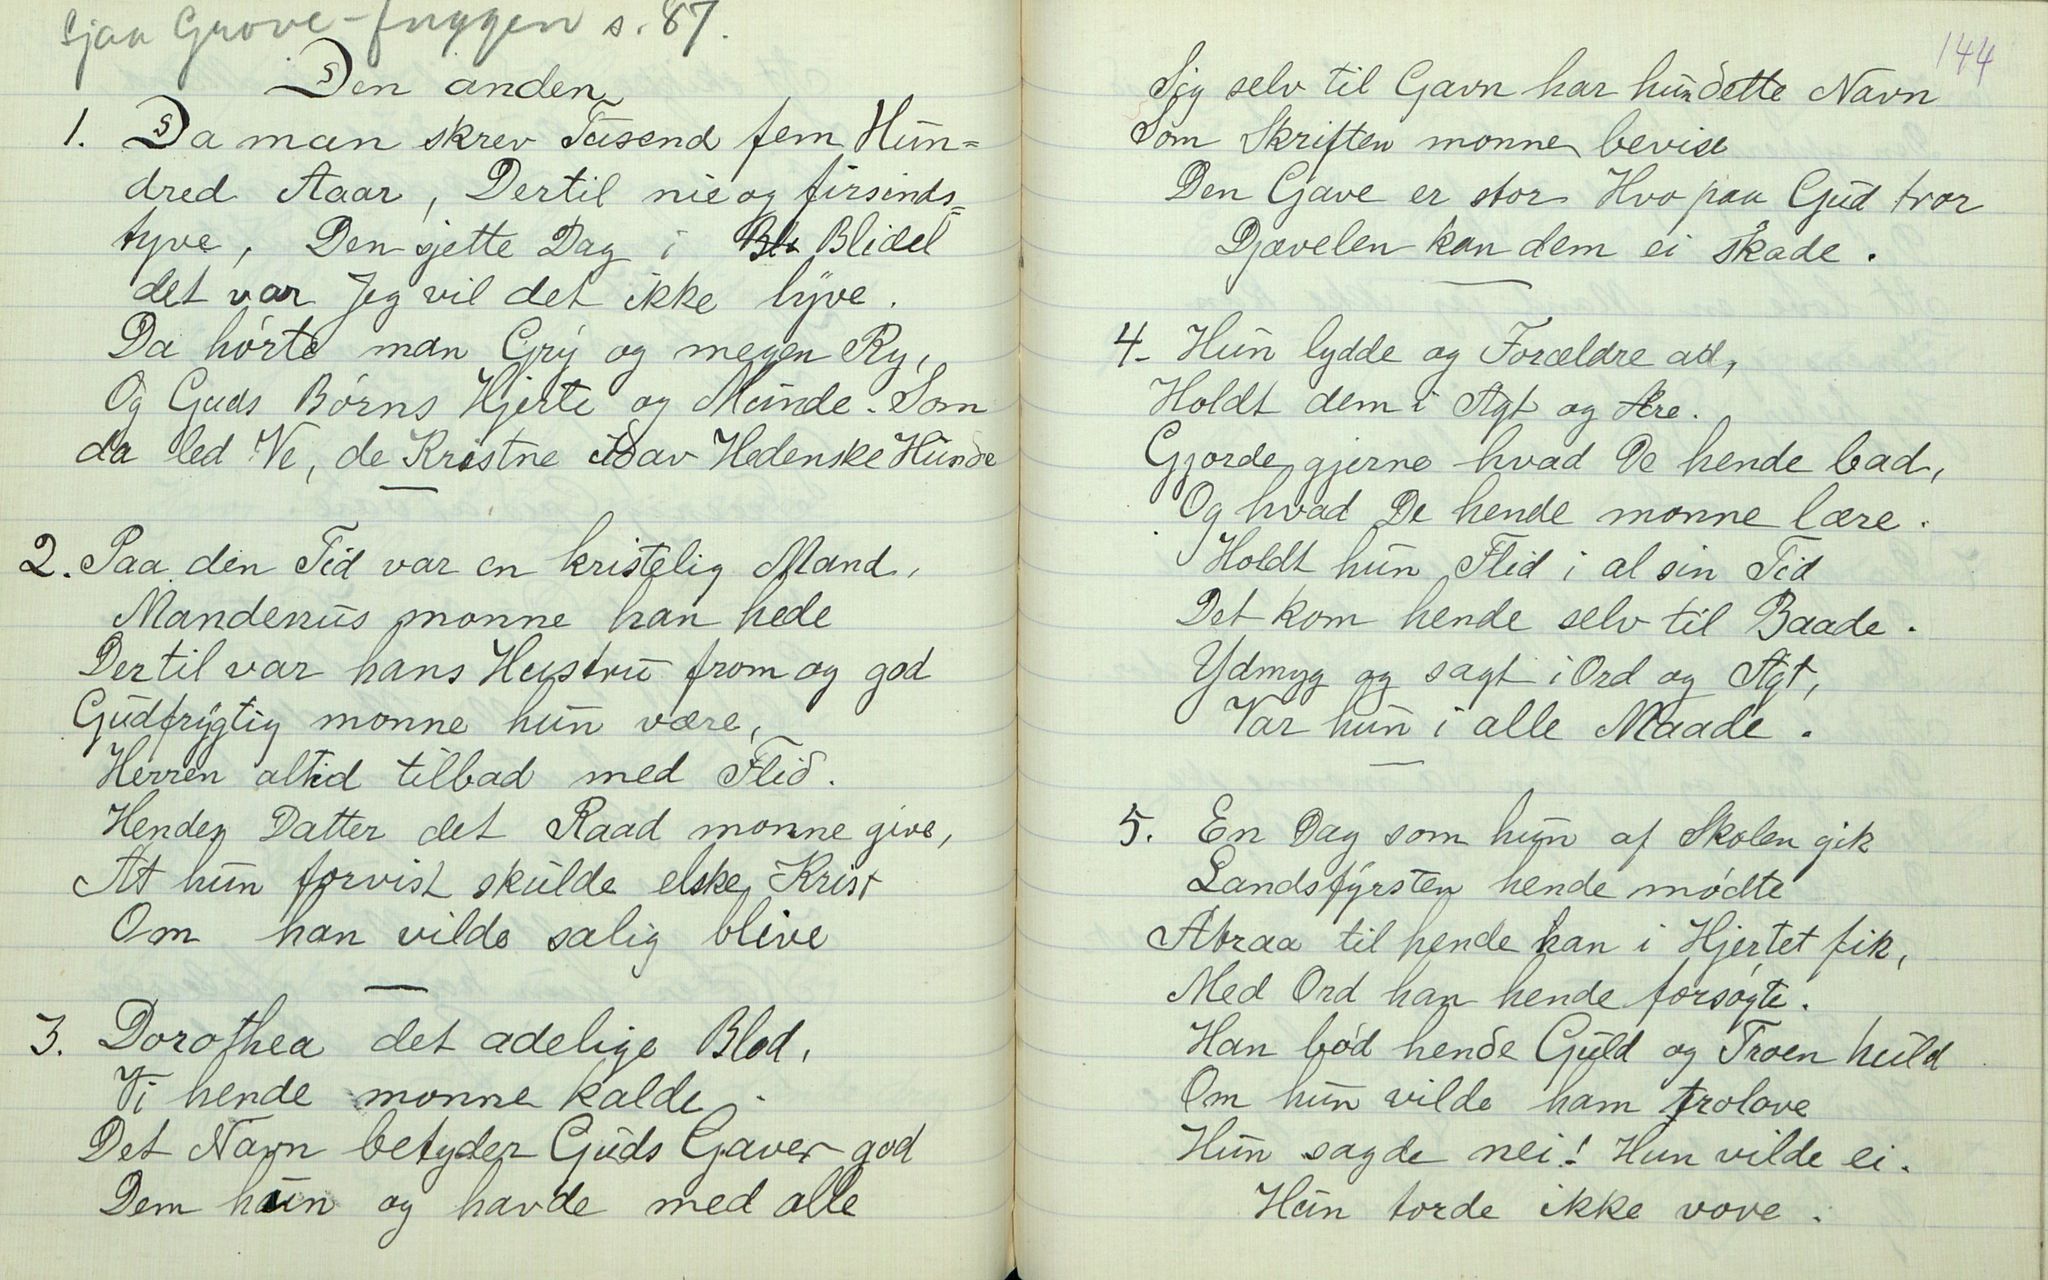 Sjaa Grove-Fuggen s. 87.
Den anden
1. Da man skrev Tusend fem Hun=
dred Aaar, Dertil nie og firsinds=
tyve, Den sjette Dag i Blidel
det var Jeg vil det ikke lyve.
Da hörte man Gry og megen Ry,
Og Guds Börns Hjerte og Munde. Som
da led Ve, de Kristne av Hedenske Hunde
2. Paa den Tid var en kristelig Mand,
Manderrus monne han hede
Dertil var hans Hustru from og god
Gudfrygtig monne hun være,
Herren altid tilbad med Flid.
Hendes Datter det Raad monne give,
At hun forvist skulde elske Krist
Om han vilde salig blive
3. Dorothea det adelige Blod,
Vi hende monne kalde
Det Navn betyder Guds Gaver god
Dem hun og havde med alle
144
Sig selv til Gavn har hun dette Navn
Som Skriften monne bevise
Den Gave er stor Hvo paa Gud tror
Djævelen kan dem ei skade.
4. Hun lydde og Forældre ad,
Holdt dem i Agt og Ære.
Gjorde gjerne hvad De hende bad,
Og hvad De hende monne lære.
Holdt hun Flid i al sin Tid
Det kom hende selv til Baade.
Ydmyg og sagt i Ord og Agt,
Var hun i alle Maade.
5. En Dag som hun af Skolen gik
Landsfyrsten hende mödte
Atraa til hende han i Hjertet fik,
Med Ord han hende forsögte.
Han böd hende Guld og Troen huld
Om hun vilde ham trolove
Hun sagde nei! Hun vilde ei.
Hun torde ikke vove.